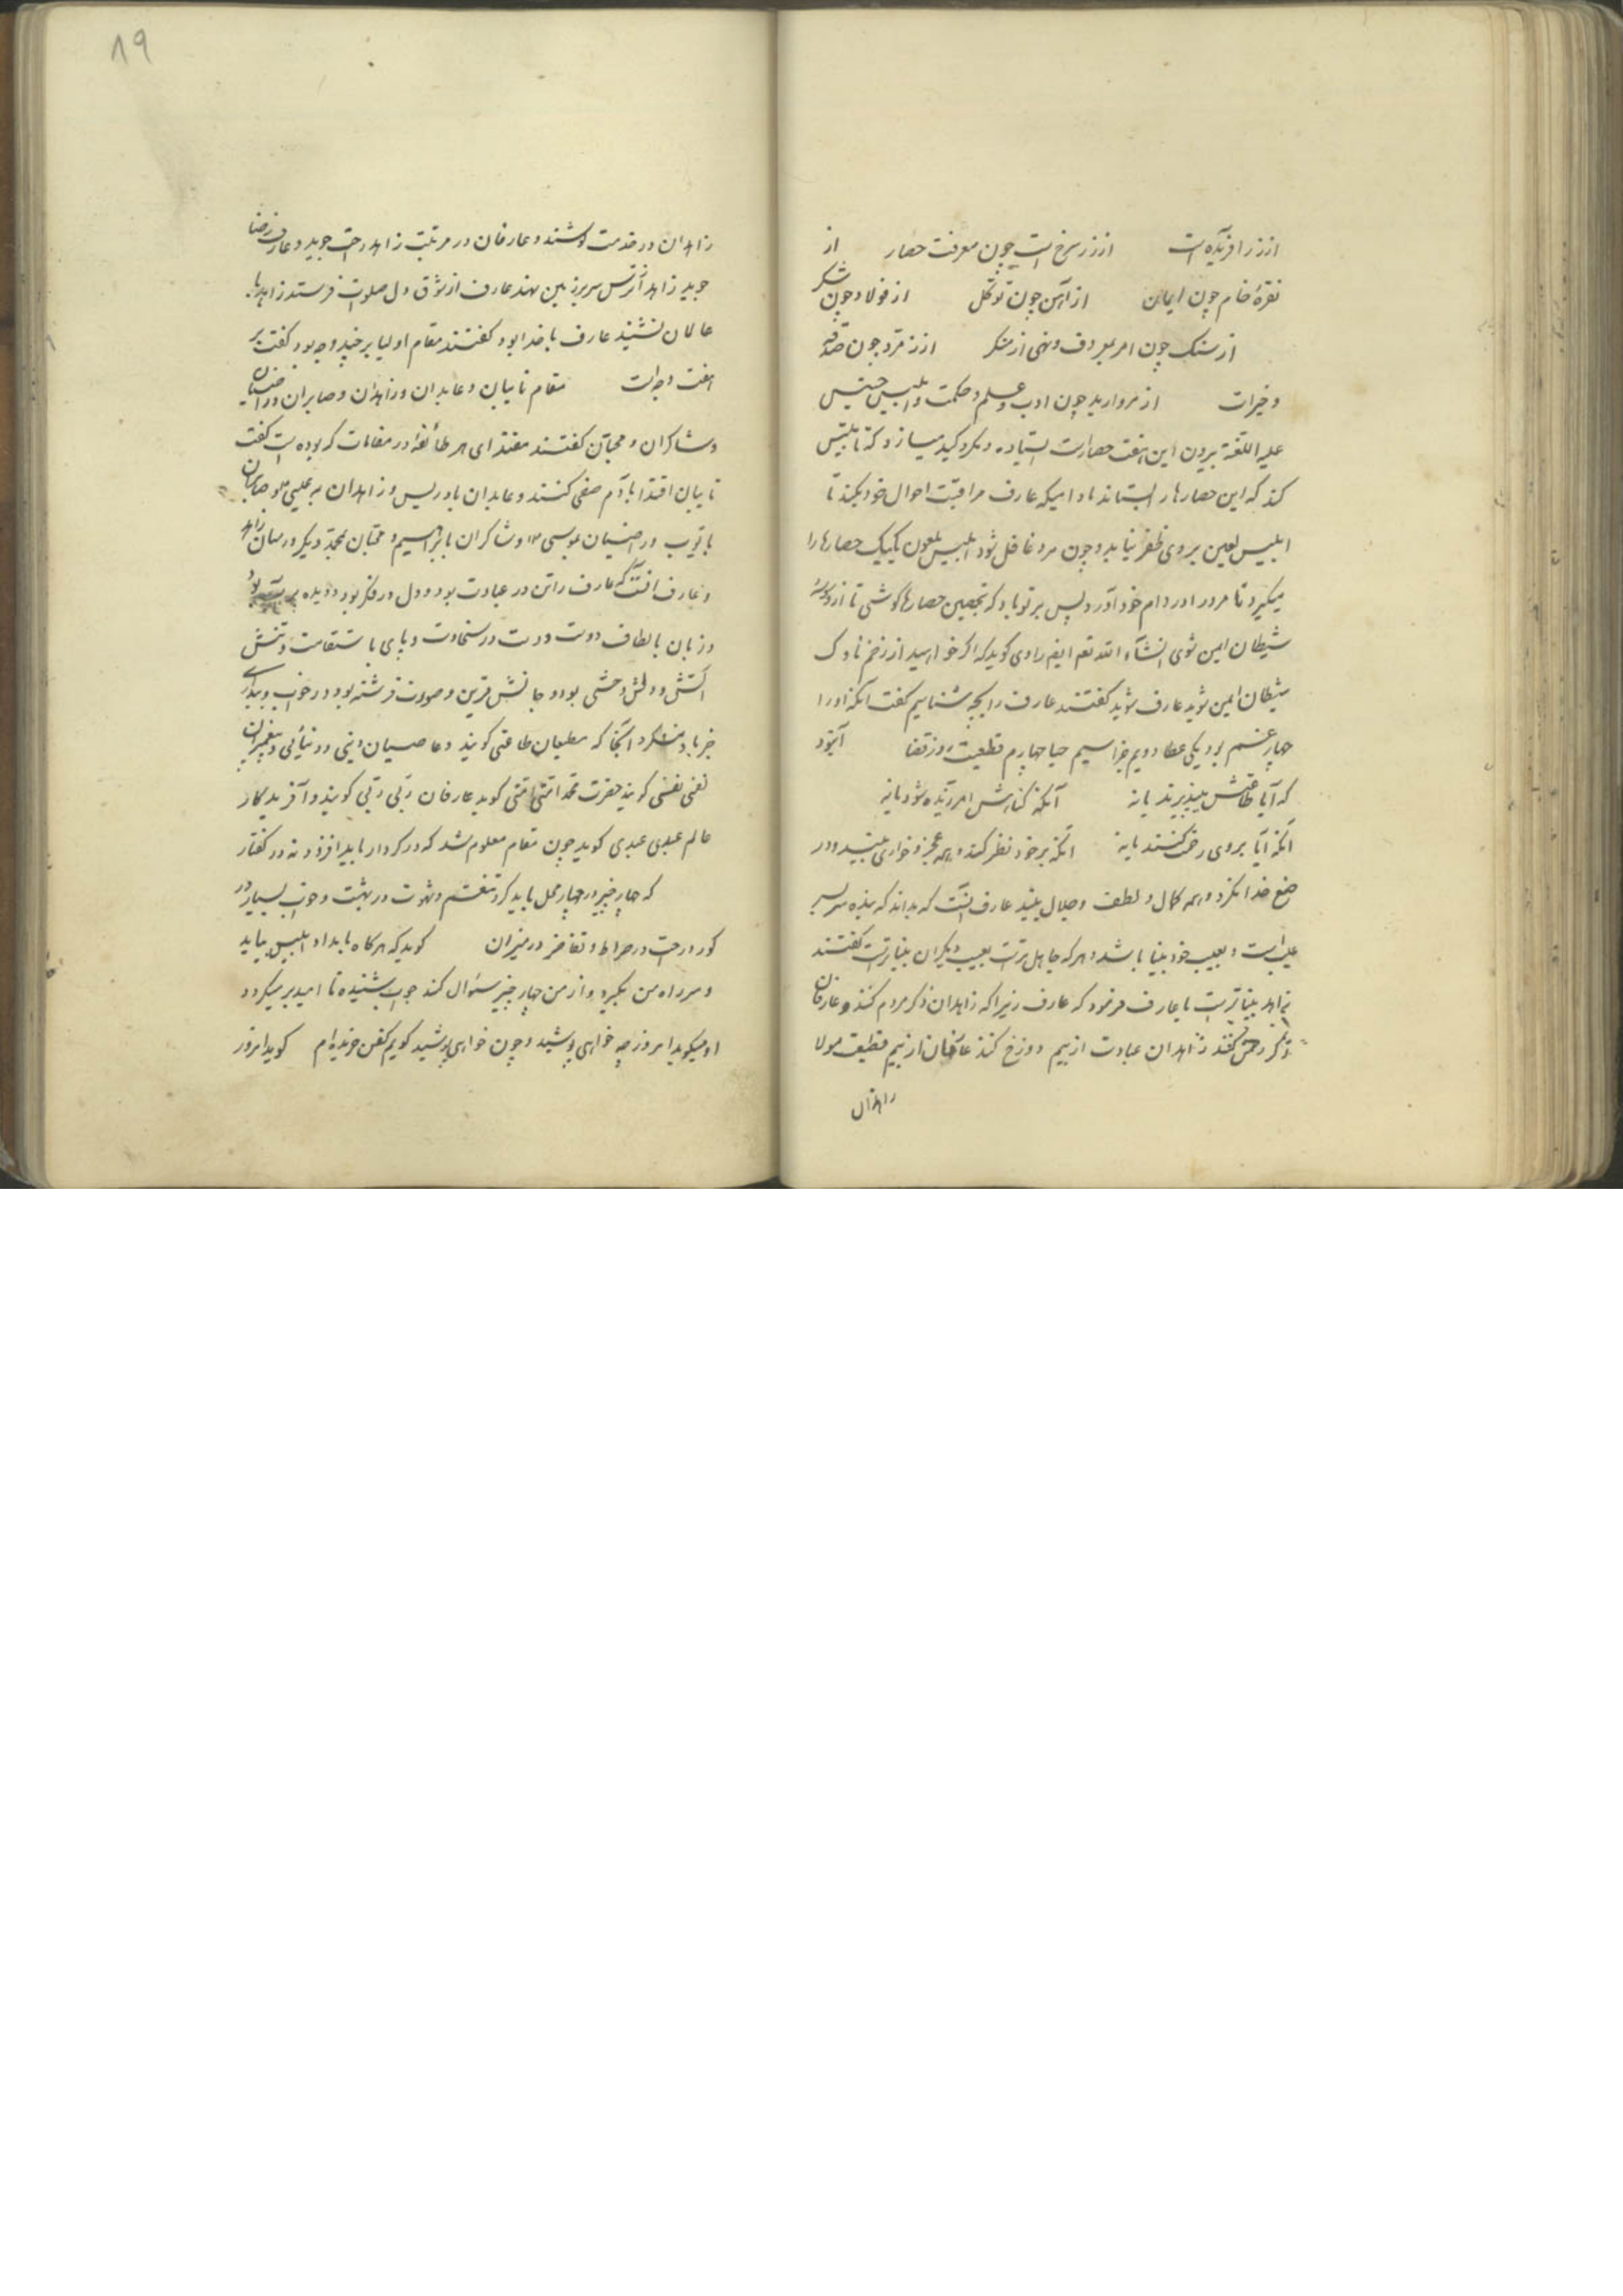 از زر افریده است از زر سرخ است چون معرفت حصار از
نقرهٔ خام چون ایمان از آهن چون توکل از فولاد چون شکر
از سنک چون امر بمعروف ونهی از منکر از زمرد چون صدقه
وخیرات از مروارید چون ادب وعلم وحکمت وابلیس خسیس
علیه اللعنة بیرون این هفت حصار است ایستاده ومکر وکید میسازد که تا تلبیس
کند که این حصارها را بستاند مادامیکه عارف مراقبت احوال خود بکند تا
ابلیس لعین بر وی ظفر نیابد وچون مرد غافل شود ابلیس ملعون یکیک حصارها را
میکیرد تا مرد را در دام خود آورد پس بر تو باد که بحصین حصارها کوشی تا از وسوسهٔ
شیطان ایمن شوی انشآء الله تعم ایضا راوی کوید که اکر خواهید از زخم ناوک
شیطان ایمن شوید عارف شوید کفتند عارف را بچه شناسیم کفت آنکه او را
چهار غم بود یکی عطا دویم جزا سیم حیا چهارم قطیعت روز قضا
که آیا طاعتش میپذیرند یا نه آنکه کناهش امرزیده شود یا نه
آنکه آیا بر وی رحمت کنند یا نه آنکه بر خود نظر کند وهمه عجز وخواری بیند ودر
صنع خدا نکرد وهمه کمال ولطف وجلال بیند عارف آنست که بداند که بنده سر بسر
عیب است وبعیب خود بینا باشد وهر که جاهل تر است بعیب دیکران بینا تر است کفتند
زاهد بینا تر است یا عارف فرمود که عارف زیرا که زاهدان ذکر مردم کنند وعارفان
ذکر رحمن کنند زاهدان عبادت از بیم دوزخ کنند عارفان از بیم قطیعت مولا
زاهدان
۸۹
زاهدان در خدمت کوشند وعارفان در مرتبت زاهد راحت جوید وعارف رضا
جوید زاهد از ترس سر بر زمین نهد عارف از شوق دل صلوات فرستد زاهد با
عالمان نشیند عارف با خدا بود کفتند مقام اولیا بر چند وجه بود کفت بر
هفت وجه است مقام تایبان وعابدان وزاهدان وصابران وراضیان
وشاکران ومحبان کفتند مقتدای هر طائفه در مقامات که بوده است کفت
تایبان اقتدا بآدم صفی کنند وعابدان بادریس وزاهدان به عیسی وصابران
بایوب وراضیان بموسی وشاکران بابراهیم ومحبان بمحمد دیکر در میان زاهد
وعارف آنست که عارف را تن در عبادت بود ودل در فکر بود ودیده بر
وزبان بالطاف دوست ودست در سخاوت وپای با استقامت وتنش
ودلش وحشی بود وجانش قرین وصورت فرشته بود در خواب وبیداری
جز یاد آنجا که مطیعان طاعتی کویند وعاصیان دینی ودنیائی وپیغمبران
نفسی نفسی کویند حضرت محمد امتی امتی کوید عارفان ربی ربی کویند وآفریدکار
عالم عبدی عبدی کوید چون مقام معلوم شد که در کردار باید افزود نه در کفتار
که چهار چیز در چهار محل باید کرد تنعم وشهوت در بهشت وخواب بسیار در
کور وراحت در صراط وتفاخر در میزان کوید که هر کاه بامداد ابلیس بیاید
وسر راه من بکیرد واز من چهار چیز سئوال کند جواب شنیده نا امید بر میکردد
او میکوید امروز چه خواهی پوشید وچون خواهی پوشید کویم کفن خریده‌ام کوید امروز